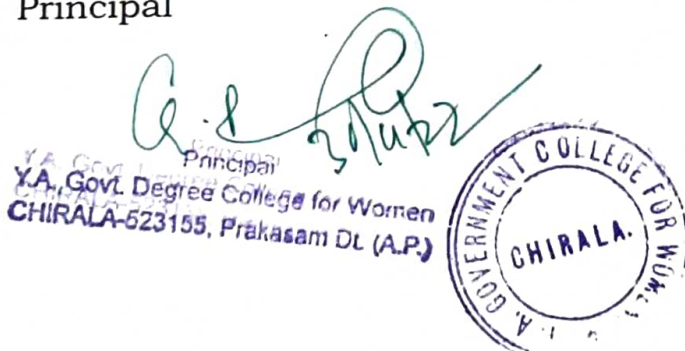 Principal
Principal
Y.A., Govt. Degree College for Women
CHIRALA-523155, Prakasam Dt. (A.P.)
Y. A. GOVERNMENT COLLEGE FOR WOMEN
CHIRALA.